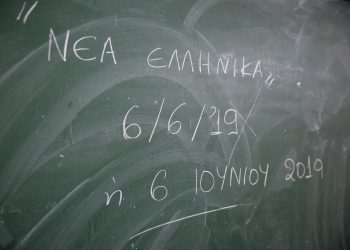 " ΝΕΑ ΕΛΛΗΝΙΚΑ "
6/6/19
ή 6 ΙΟΥΝΙΟΥ 2019